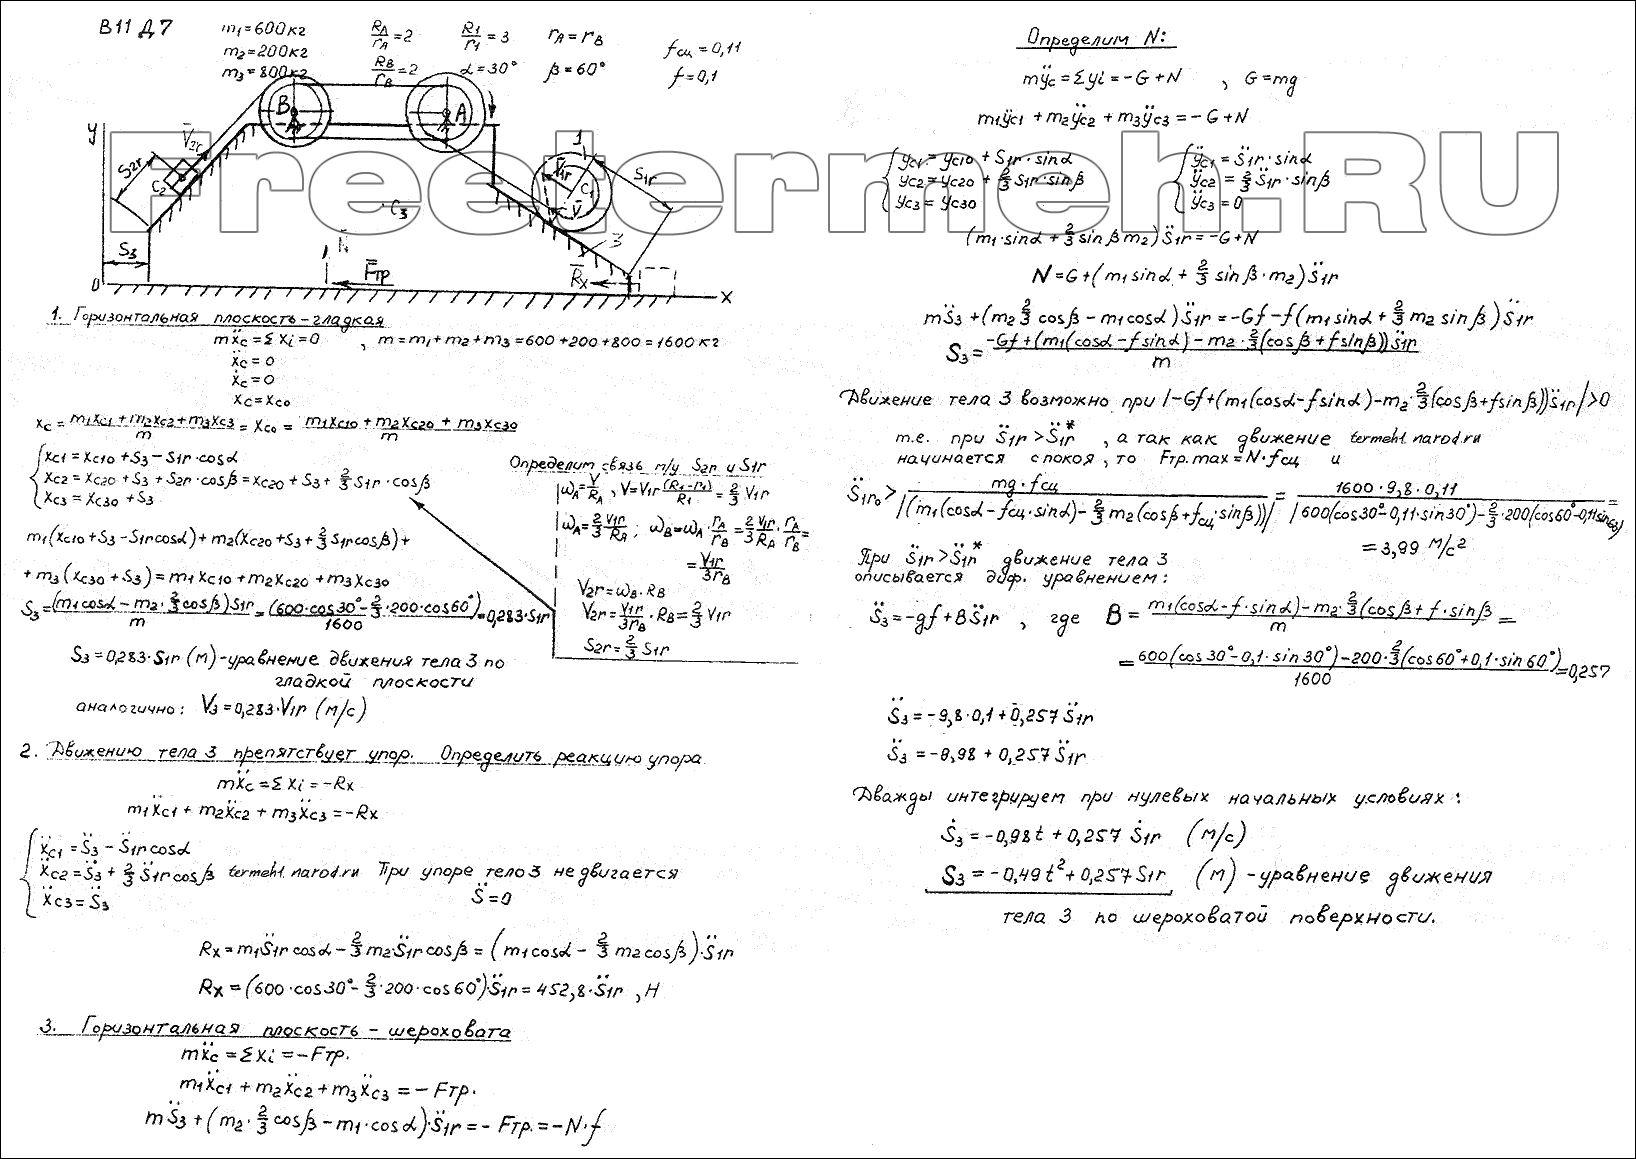 В11 Д7
m₁=600кг
m₂=200кг
m₃=800кг
R_A/r_A=2
R_B/r_B=2
R₁/r₁=3
α=30°
r_A=r_B
β=60°
f_сц=0,11
f=0,1
Freetermeh.RU
y
B
A
V̄₂r
S₂r
C₂
1
V̄₁r
C₁
S₁r
V̄
C₃
S₃
N̄
F̄тр
3
R̄x
0
x
1. Горизонтальная плоскость-гладкая
mẍc=ΣXi=0 , m=m₁+m₂+m₃=600+200+800=1600 кг
ẍc=0
ẋc=0
xc=xc₀
xc=(m₁xc₁+m₂xc₂+m₃xc₃)/m=xc₀=(m₁xc₁₀+m₂xc₂₀+m₃xc₃₀)/m
xc₁=xc₁₀+S₃-S₁r·cosα
xc₂=xc₂₀+S₃+S₂r·cosβ=xc₂₀+S₃+2/3 S₁r·cosβ
xc₃=xc₃₀+S₃
m₁(xc₁₀+S₃-S₁rcosα)+m₂(xc₂₀+S₃+2/3 S₁rcosβ)+
+m₃(xc₃₀+S₃)=m₁xc₁₀+m₂xc₂₀+m₃xc₃₀
S₃=(m₁cosα-m₂·2/3cosβ)S₁r/m=(600·cos30°-2/3·200·cos60°)/1600=0,283·S₁r
S₃=0,283·S₁r (м)-уравнение движения тела 3 по
гладкой плоскости
аналогично: V₃=0,283·V₁r (м/с)
Определим связь м/у S₂r и S₁r
ω_A=V/R_A , V=V₁r(R₁-r₁)/R₁=2/3 V₁r
ω_A=2/3 V₁r/R_A ; ω_B=ω_A·r_A/r_B=2/3 V₁r/R_A·r_A/r_B=
=V₁r/3r_B
V₂r=ω_B·R_B
V₂r=V₁r/3r_B·R_B=2/3 V₁r
S₂r=2/3 S₁r
2. Движению тела 3 препятствует упор. Определить реакцию упора
mẍc=ΣXi=-Rx
m₁ẍc₁+m₂ẍc₂+m₃ẍc₃=-Rx
ẍc₁=S̈₃-S̈₁rcosα
ẍc₂=S̈₃+2/3 S̈₁rcosβ termeh1.narod.ru При упоре тело 3 не двигается
ẍc₃=S̈₃
S̈=0
Rx=m₁S̈₁rcosα-2/3 m₂·S̈₁rcosβ=(m₁cosα-2/3 m₂cosβ)·S̈₁r
Rx=(600·cos30°-2/3·200·cos60°)·S̈₁r=452,8·S̈₁r , Н
3. Горизонтальная плоскость-шероховата
mẍc=ΣXi=-Fтр.
m₁ẍc₁+m₂ẍc₂+m₃ẍc₃=-Fтр.
mS̈₃+(m₂·2/3cosβ-m₁·cosα)·S̈₁r=-Fтр.=-N·f
Определим N:
mÿc=Σyi=-G+N , G=mg
m₁ÿc₁+m₂ÿc₂+m₃ÿc₃=-G+N
yc₁=yc₁₀+S₁r·sinα
yc₂=yc₂₀+2/3 S₁r·sinβ
yc₃=yc₃₀
ÿc₁=S̈₁r·sinα
ÿc₂=2/3 S̈₁r·sinβ
ÿc₃=0
(m₁·sinα+2/3 sinβm₂)S̈₁r=-G+N
N=G+(m₁sinα+2/3 sinβ·m₂)S̈₁r
mS̈₃+(m₂2/3cosβ-m₁cosα)S̈₁r=-Gf-f(m₁sinα+2/3 m₂sinβ)S̈₁r
S̈₃=(-Gf+(m₁(cosα-fsinα)-m₂·2/3(cosβ+fsinβ))S̈₁r)/m
Движение тела 3 возможно при |-Gf+(m₁(cosα-fsinα)-m₂·2/3(cosβ+fsinβ))S̈₁r|>0
т.е. при S̈₁r>S̈₁r* , а так как движение termeh1.narod.ru
начинается с покоя, то Fтр.max=N·fсц и
S̈₁r₀>mg·fсц/|(m₁(cosα-fсц·sinα)-2/3 m₂(cosβ+fсц·sinβ))|=1600·9,8·0,11/|600(cos30°-0,11·sin30°)-2/3·200(cos60°-0,11sin60)|=
=3,99 м/с²
При S̈₁r>S̈₁r* движение тела 3
описывается диф. уравнением:
S̈₃=-gf+BS̈₁r , где B=(m₁(cosα-f·sinα)-m₂·2/3(cosβ+f·sinβ)/m=
=(600(cos30°-0,1·sin30°)-200·2/3(cos60°+0,1·sin60°))/1600=0,257
S̈₃=-9,8·0,1+0,257S̈₁r
S̈₃=-0,98+0,257S̈₁r
Дважды интегрируем при нулевых начальных условиях:
Ṡ₃=-0,98t+0,257Ṡ₁r (м/с)
S₃=-0,49t²+0,257S₁r (м)-уравнение движения
тела 3 по шероховатой поверхности.